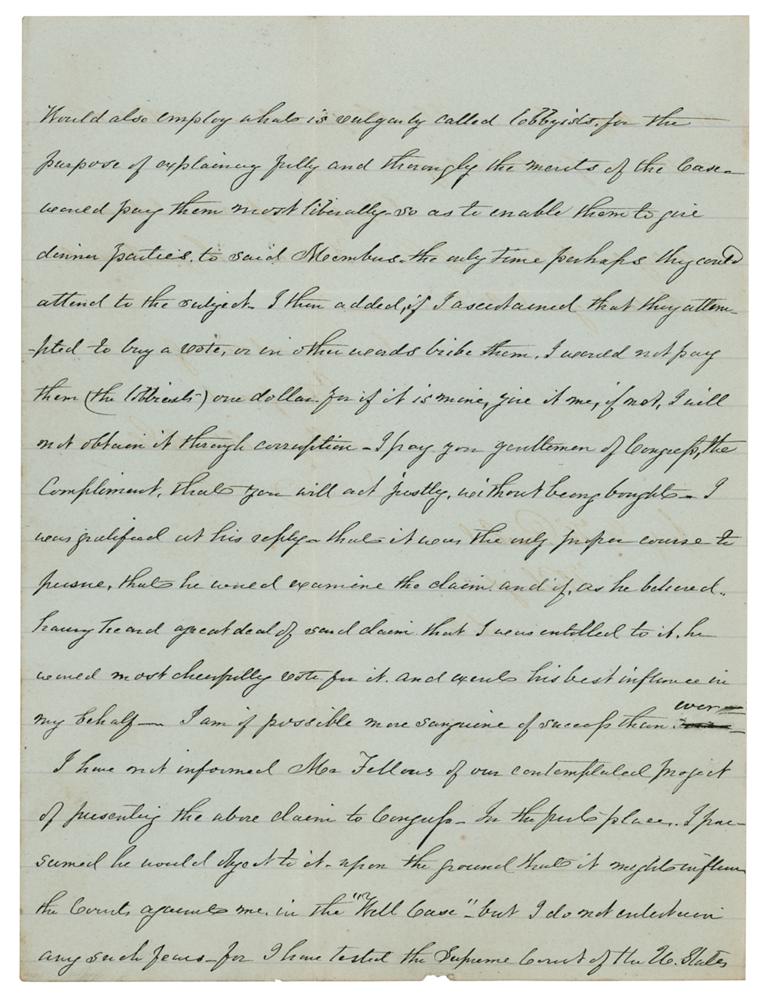 Would also employ what is vulgarly called lobbyists, for the
purpose of explaining fully and thorougly the merits of the Case –
would pay them most liberally – so as to enable them to give
dinner parties, to said Members, the only time perhaps they could
attend to the subject – I then added, if I ascertained that they attem-
-pted to buy a vote, or in other words bribe them, I would not pay
them (the lobbiests) one dollar – for if it is mine, give it me, if not, I will
not obtain it through corruption – I pay you gentlemen of Congress, the
Compliment, that you will act justly, without being bought – I
was gratified at his reply – that it was the only proper course to
pursue, that he would examine the claim and if, as he believed –
having heard a great deal of said claim that I was entitled to it, he
would most cheerfully vote for it. and exert his best influence in
my behalf — I am if possible more sanguine of success than ever –
I have not informed Mr Fellows of our contemplated project
of presenting the above claim to Congress – In the first place, I pre-
sumed he would object to it – upon the ground that it might influence
the Courts against me, in the "Will Case" – but I do not entertain
any such fears – for I have tested the Supreme Court of the U. States